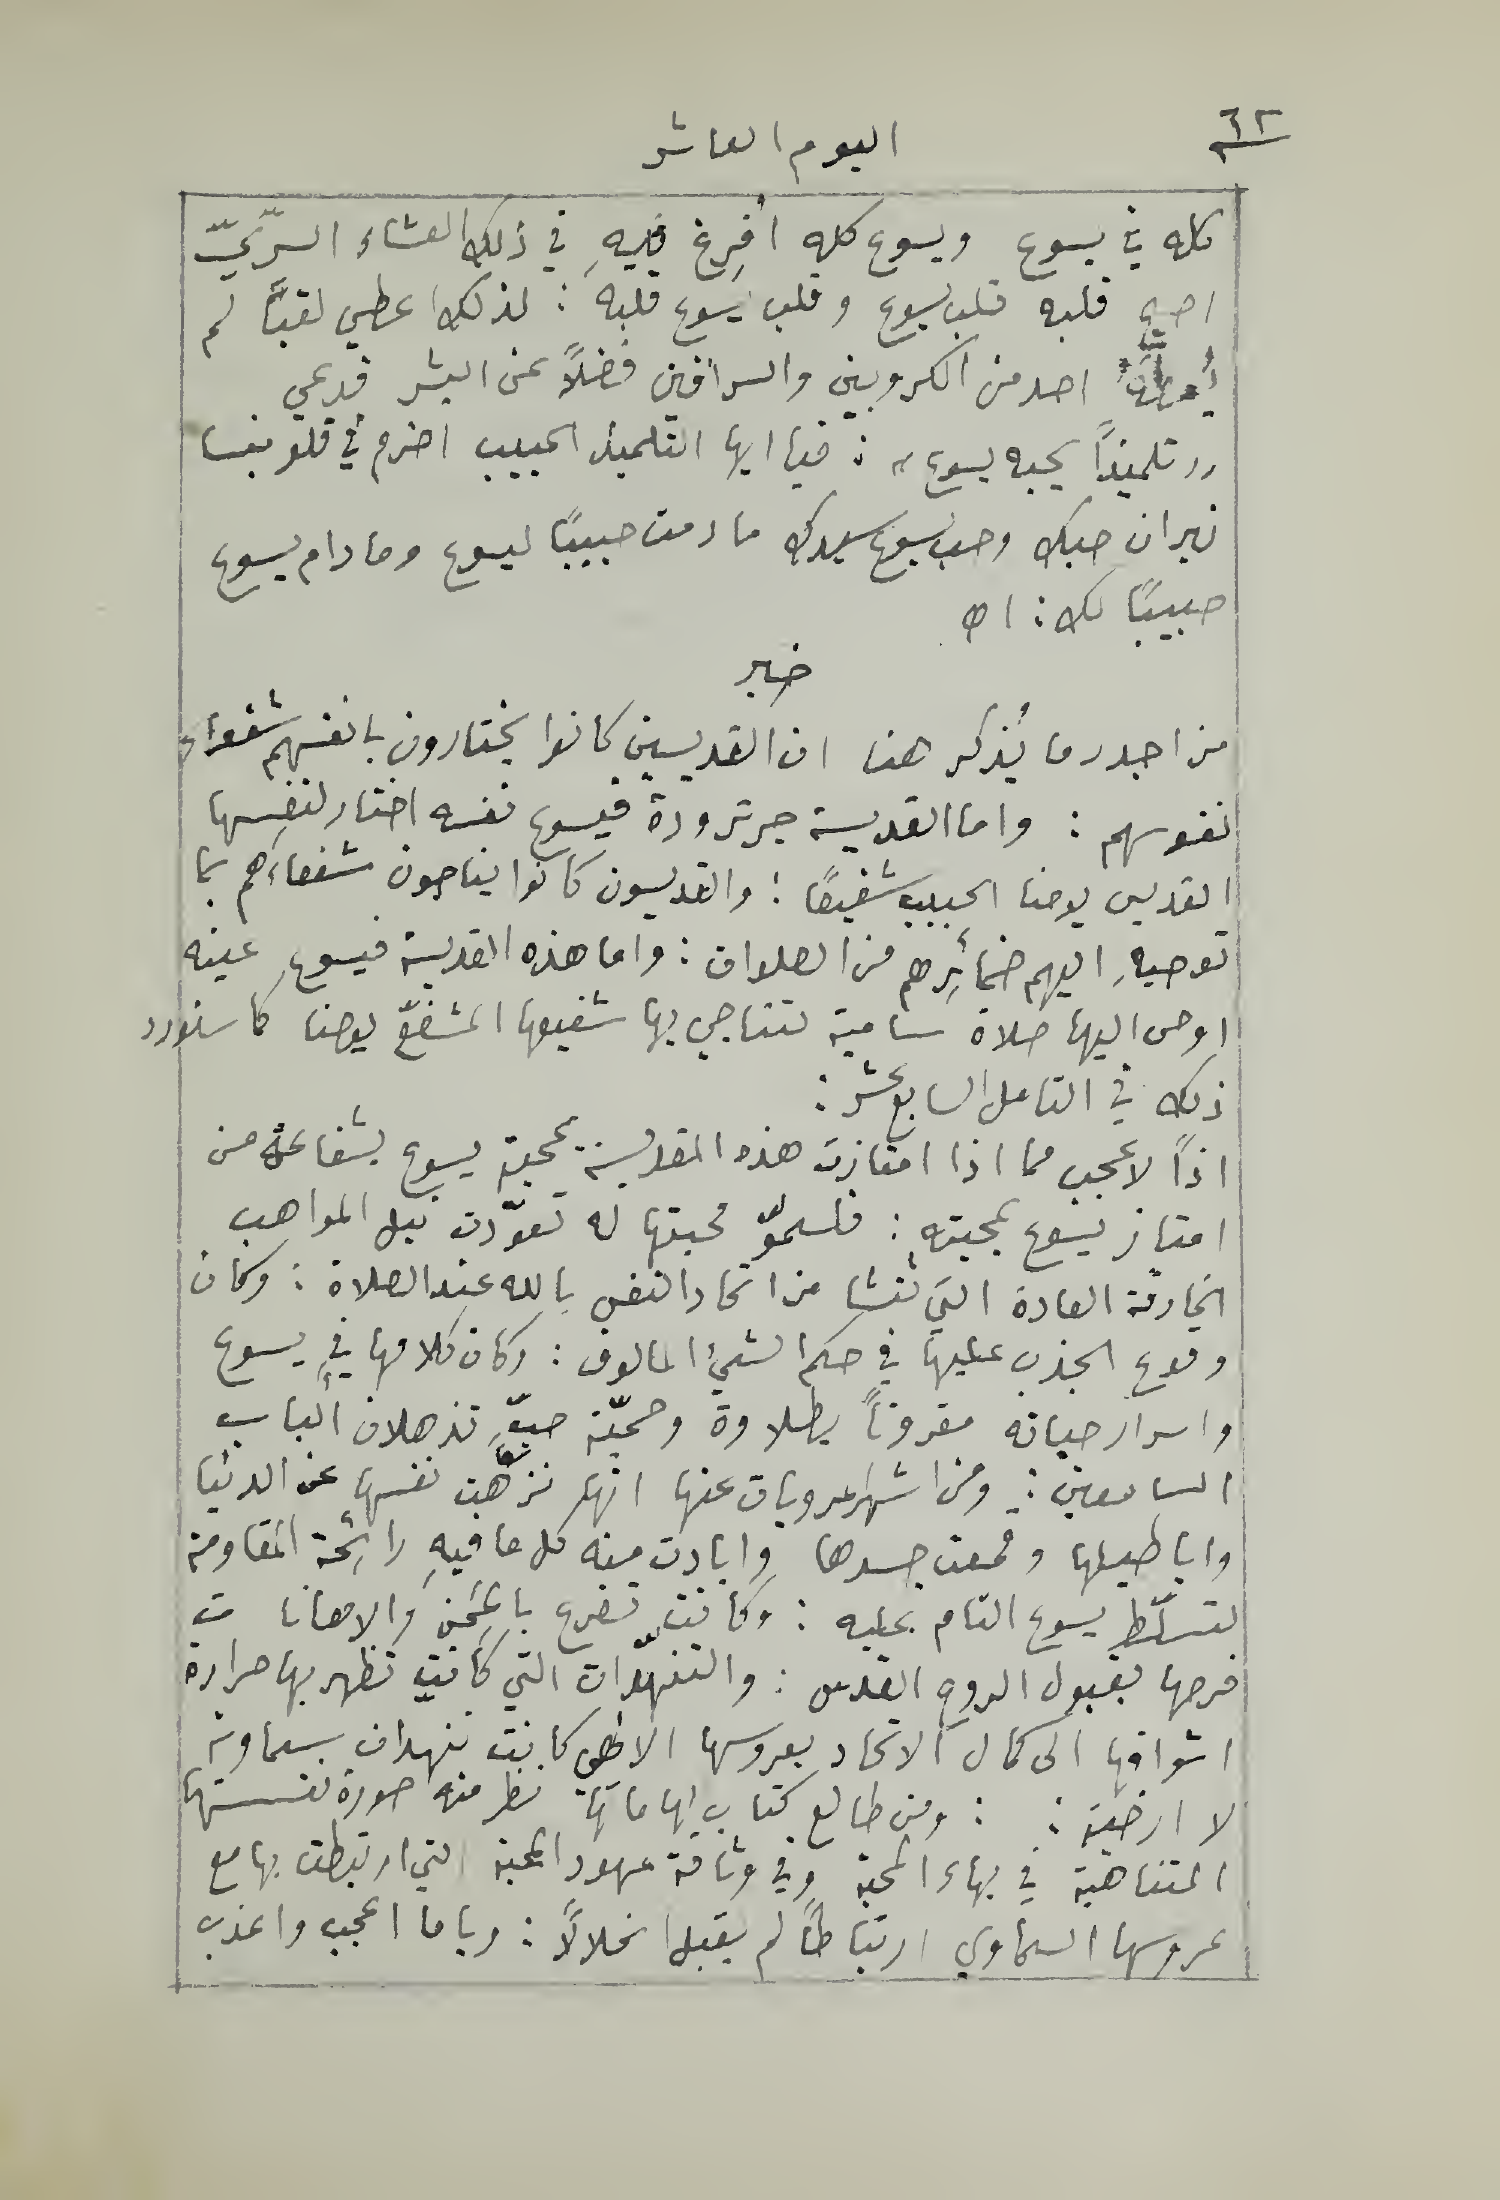 ٦٢
اليوم العاشر
كله في يسوع ويسوع كله أُفرِغ فيهِ في ذلك العشاء السرّيّ
اصبح قلبه قلب يسوع وقلب يسوع قلبه : لذلك اعطي لقبًا لم
يُعطَهُ احد من الكروبين والسرافين فضلاً عن البشر فدعي
,, تلميذاً يحبه يسوع ,, : فيا ايها التلميذ الحبيب اضرم في قلوبنا
نيران حبك وحب يسوع سيدك ما دمت حبيبًا ليسوع وما دام يسوع
حبيبًا لك : اه
خبر
من اجدر ما يُذكر هنا ان القديسين كانوا يختارون بانفسهم شفعاء
نفوسهم : واما القديسة جرترودة فيسوع نفسه اختار لنفسها
القديس يوحنا الحبيب شفيعًا : والقديسون كانوا يناجون شفعاءَهم بما
توحيهِ اليهم ضمائِرهم من الصلوات : واما هذه القديسة فيسوع عينه
اوحى اليها صلاة سامية تتناجي بها شفيعها المشفّع يوحنا كما سنورد
ذلك في التامل السابع عشر :
اذاً لا عجب مما اذا امتازت هذه القديسة بمحبة يسوع بشفاعة من
امتاز يسوع بمحبته : فلسموّ محبتها له تعوّدت نيل المواهب
الخارقة العادة التي تنشا من اتحاد النفس بالله عند الصلاة : وكان
وقوع الجذب عليها في حكم الشيء المالوف : وكان كلامها في يسوع
واسرار حياته مقروناً بطلاوة وحميّة حبٍّ تذهلان ألباب
السامعين : ومن اشهر مرويات عنها انها نزّهت نفسها عن الدنيا
واباطيلها وقمعت جسدها وابادت منه كل ما فيهِ رائِحة المقاومة
لتسلّط يسوع التام عليه : وكانت تفرح بالمحن والاهانات
فرحها بقبول الروح القدس : والتنهّدات التي كانت تظهر بها حرارة
اشواقها الى كمال الاتحاد بعروسها الالهي كانت تنهدات سماوية
لا ارضية : : ومن طالع كتاب الهاماتها نظر منه صورة نفسها
المتناهية في بهاء المحبة وفي وثاقة عهود المحبة التي ارتبطت بها مع
عروسها السماوي ارتباطًا لم يقبل انحلالاً : ويا ما اعجب واعذب